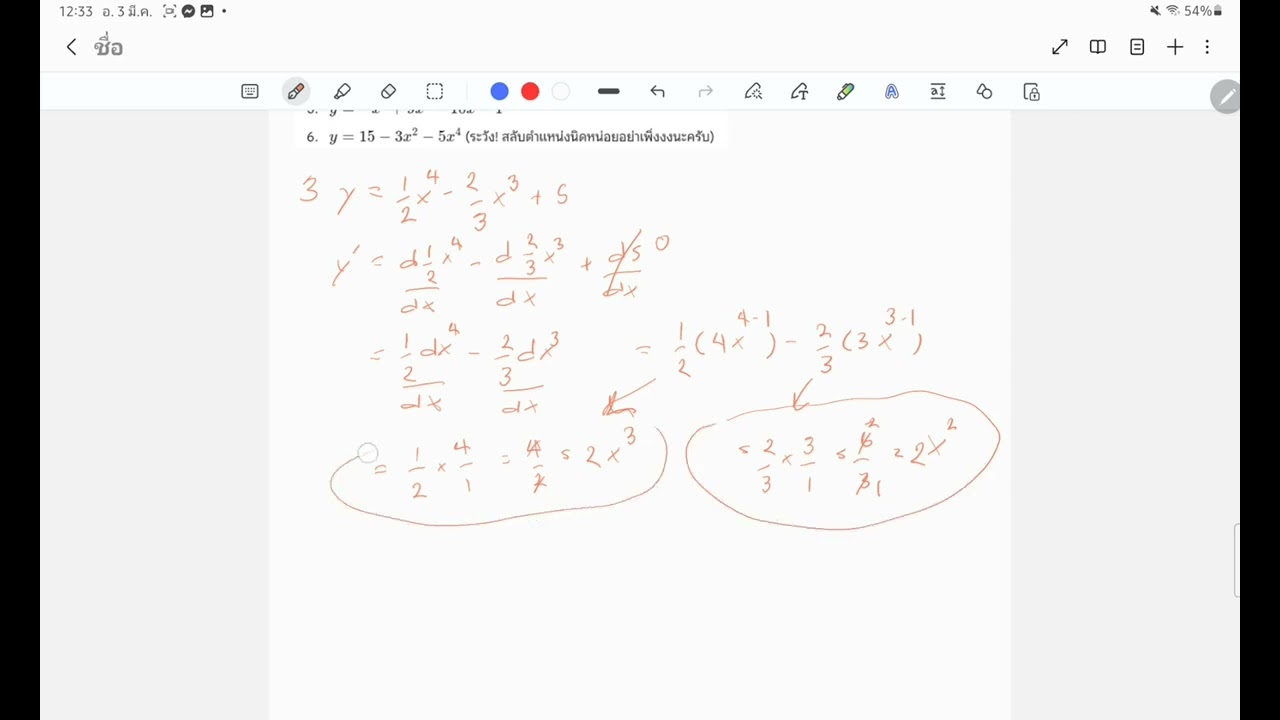 12:33 อ. 3 มี.ค. 54%
ชื่อ
6. y = 15 − 3x² − 5x⁴ (ระวัง! สลับตำแหน่งนิดหน่อยอย่าเพิ่งงงนะครับ)
3 y = 1/2 x⁴ - 2/3 x³ + 5
y' = d 1/2 x⁴ / dx - d 2/3 x³ / dx + d5 / dx 0
= 1/2 dx⁴ / dx - 2/3 dx³ / dx = 1/2 (4x⁴⁻¹) - 2/3 (3x³⁻¹)
= 1/2 × 4/1 = 4/2 = 2x³
= 2/3 × 3/1 = 6/3 2 1 = 2x²